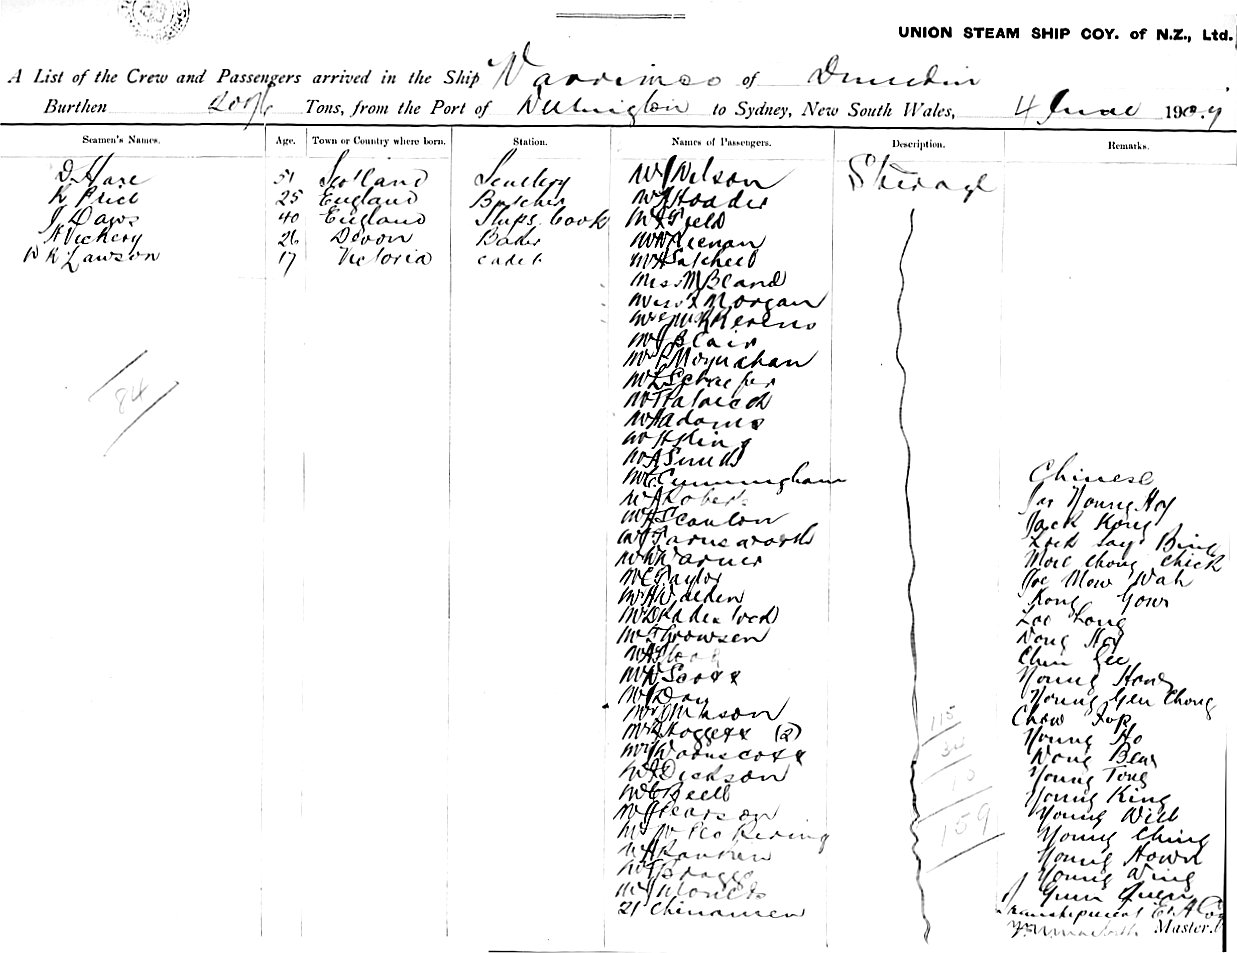 UNION STEAM SHIP COY. of N.Z., Ltd.
A List of the Crew and Passengers arrived in the Ship Warrimoo of Dunedin
Burthen Tons, from the Port of Wellington to Sydney, New South Wales, 4 June 1909
Seamen's Names. Age. Town or Country where born. Station. Names of Passengers. Description. Remarks.
D Hare 51 Scotland Scullery
R Price 25 England Butcher
J Daws 40 England Ships Cook
A Vickery 26 Devon Baker
W R Lawson 17 Victoria cadet
84
Mr J Wilson
Mr J Hoader
Mr Field
Mr Keenan
Mr A Satchell
Miss M Bland
Miss Morgan
Mr J Blair
Mr P Moynahan
Mr L Schaefer
Mr Adams
Mr H King
Mr A Smith
Mr C Cunningham
Mr J Roberts
Mr Scanlon
Mr J Farnsworth
Mr W Warner
Mr C Taylor
Mr A Walden
Mr Throwsen
Mr W Scott
Mr Day
Mr Johnson
Mr Hoggett (2)
Mr J Warnscott
Mr J Dickson
Mr C Bell
Mr J Pearson
Mr W Pickering
Mr A Rankin
Mr J Bragge
21 Chinamen
Steerage
115
34
10
159
Chinese
Jas Young Hoy
Jack Kong
Lock Say Bing
Moie Chong Chick
Joe Mow Wah
Kong Gow
Lee Long
Wong Hoy
Chin Gee
Young Hong
Young Gen Chong
Chow Fop
Young Ho
Wong Bew
Young Tong
Young King
Young Will
Young Ching
Young Hown
Young Wing
Gum Quen
Transhipment E & A Coy
Master.